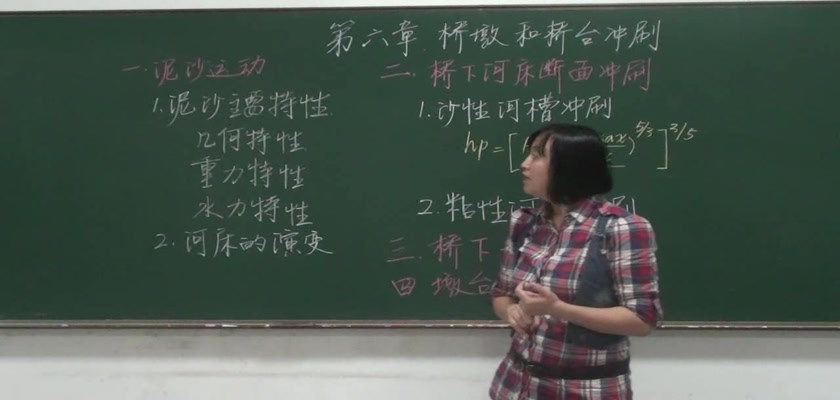 第六章 桥墩和桥台冲刷
一 泥沙运动
1.泥沙主要特性
几何特性
重力特性
水力特性
2.河床的演变
二.桥下河床断面冲刷
1.沙性河槽冲刷
hp=[ ax)^5/3]^3/5
2.粘性河 刷
三.桥下
四 墩台